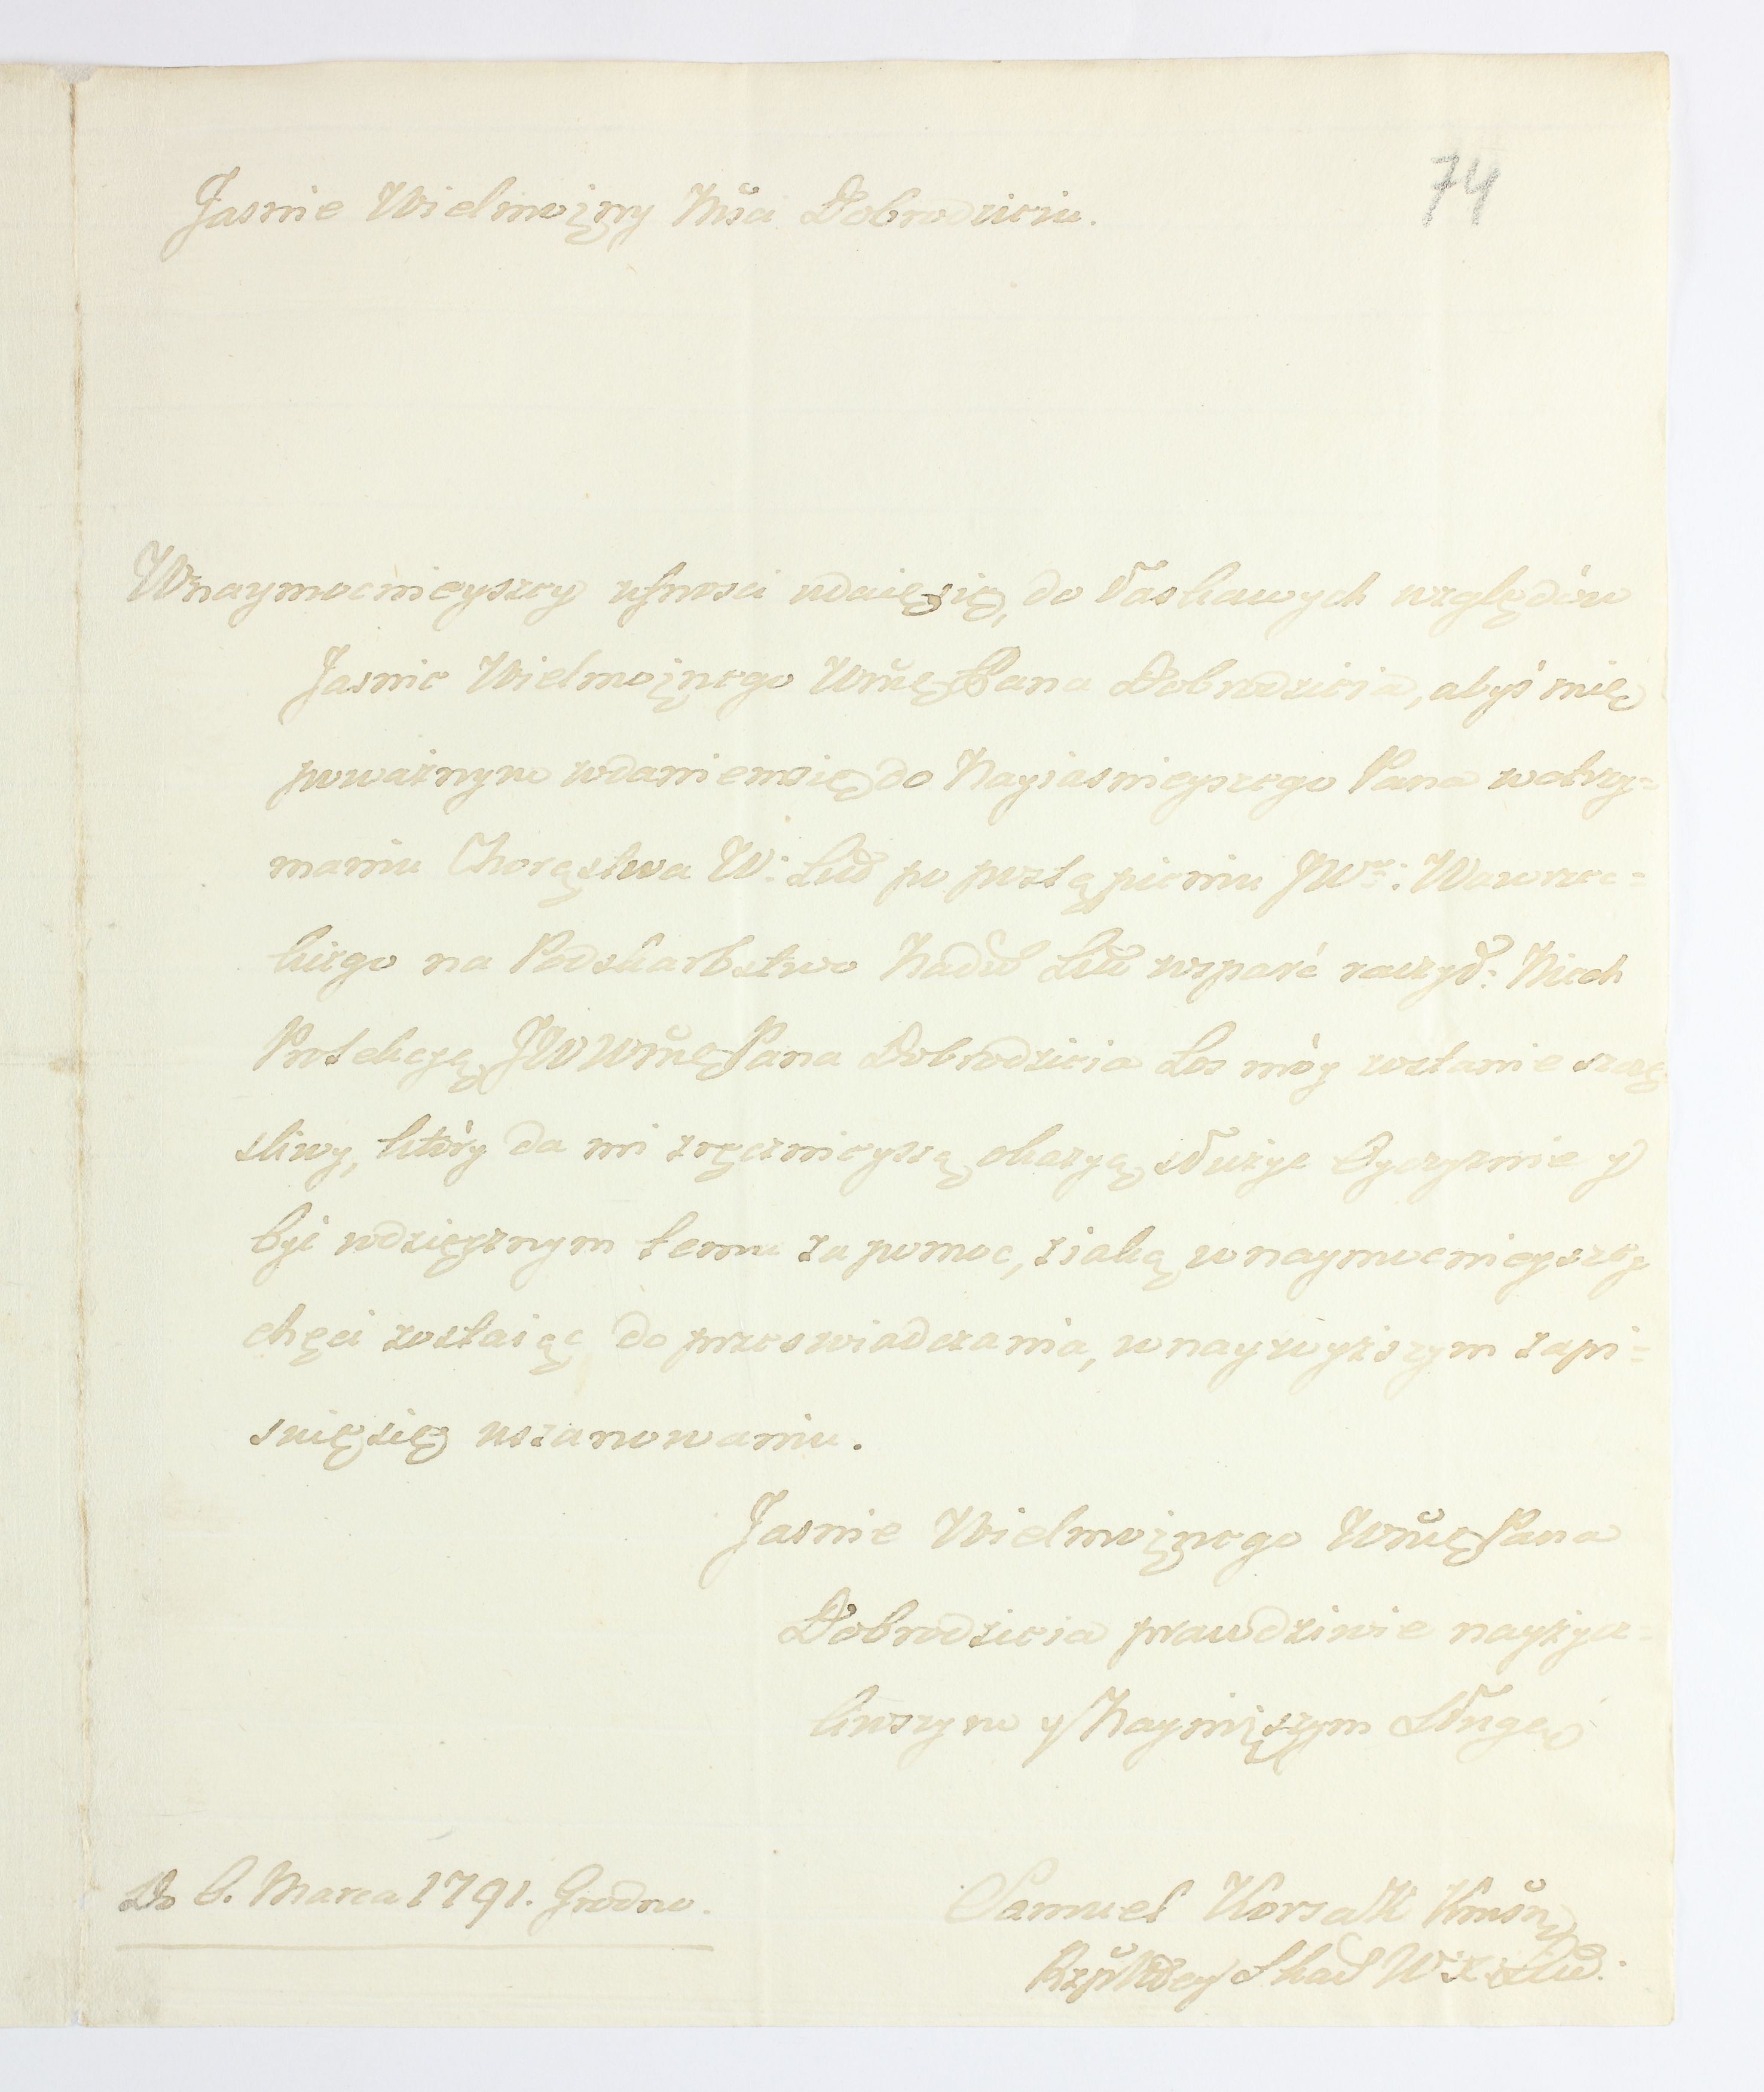 74
Jasnie Wielmożny Mści Dobrodzieiu.
Wnaymocnieyszey ufnosci udaię się, do łaskawych względów
Jasnie Wielmożnego Wmć Pana Dobrodzieia, abyś mię
poważnym wdaniem się do Nayiasnieyszego Pana wotrzy=
maniu Chorąstwa W: Litt po postąpieniu JW: Wawrzec=
kiego na Podskarbstwo Nadw Litt wsparć raczył: Niech
Protekcyą JW Wmć Pana Dobrodzieia Los móy zostanie szczę
sliwy, który da mi zręcznieyszą okazyą służyc Oyczyznie y
być wdzięcznym temu za pomoc, z iaką wnaymocnieyszey
chęci zostaiąc do przeswiadczania, wnaywyższym zapi=
suię się uszanowaniu.
Jasnie Wielmożnego Wmć Pana
Dobrodzieia prawdziwie nayżycz=
liwszym y Nayniższym Sługą
D 6. Marca 1791. Grodno.
Samuel Korsak
Skar W: X: Litt: